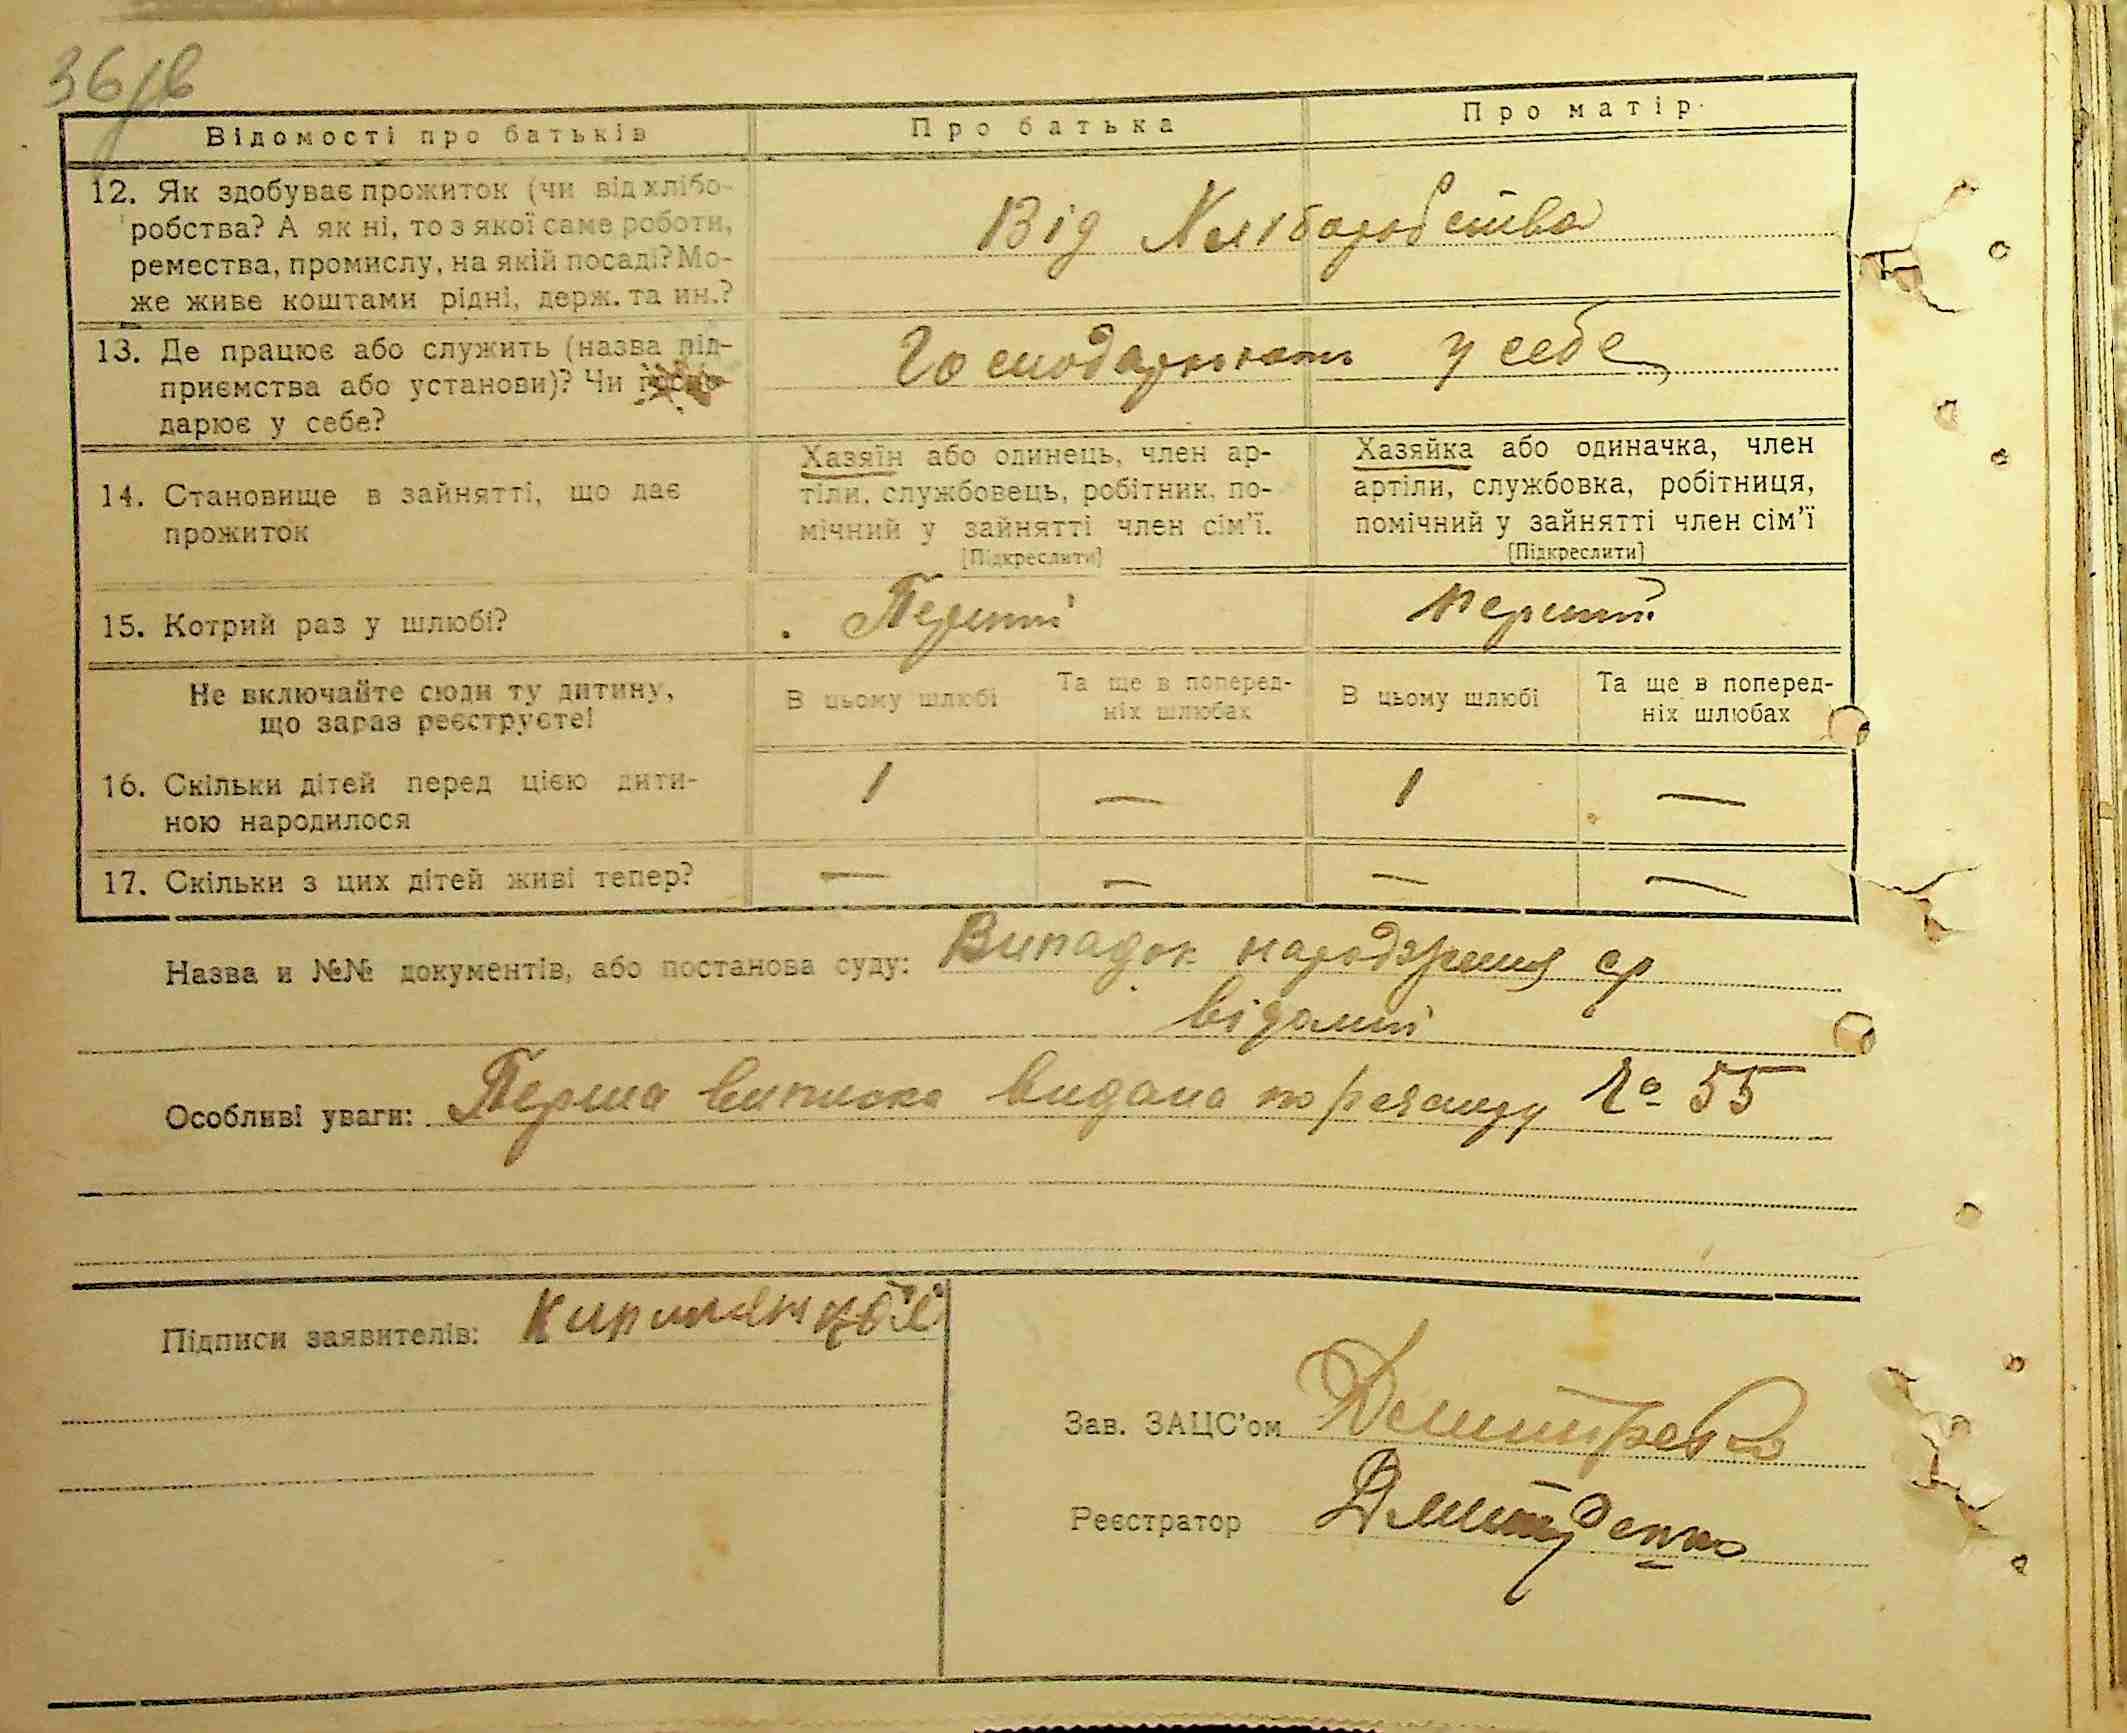 36зв
Відомості про батьків
Про батька
Про матір
12. Як здобуває прожиток (чи від хлібо-
робства? А як ні, то з якої саме роботи,
ремества, промислу, на якій посаді? Мо-
же живе коштами рідні, держ. та ин.?
Від Хліборобства
13. Де працює або служить (назва під-
приємства або установи)? Чи госпо-
дарює у себе?
Господарюють у себе
14. Становище в зайнятті, що дає
прожиток
Хазяїн або одинець, член ар-
тіли, службовець, робітник, по-
мічний у зайнятті член сім'ї.
[Підкреслити]
Хазяйка або одиначка, член
артіли, службовка, робітниця,
помічний у зайнятті член сім'ї
[Підкреслити]
15. Котрий раз у шлюбі?
Перший
перший
Не включайте сюди ту дитину,
що зараз реєструєте!
В цьому шлюбі
Та ще в поперед-
ніх шлюбах
В цьому шлюбі
Та ще в поперед-
ніх шлюбах
16. Скільки дітей перед цією дити-
ною народилося
1 — 1 —
17. Скільки з цих дітей живі тепер?
— — — —
Назва и №№ документів, або постанова суду: Випадок народження ср
відомий
Особливі уваги: Перша виписка видана по № 55
Підписи заявителів:
Зав. ЗАЦС'ом
Реєстратор Дмитренко